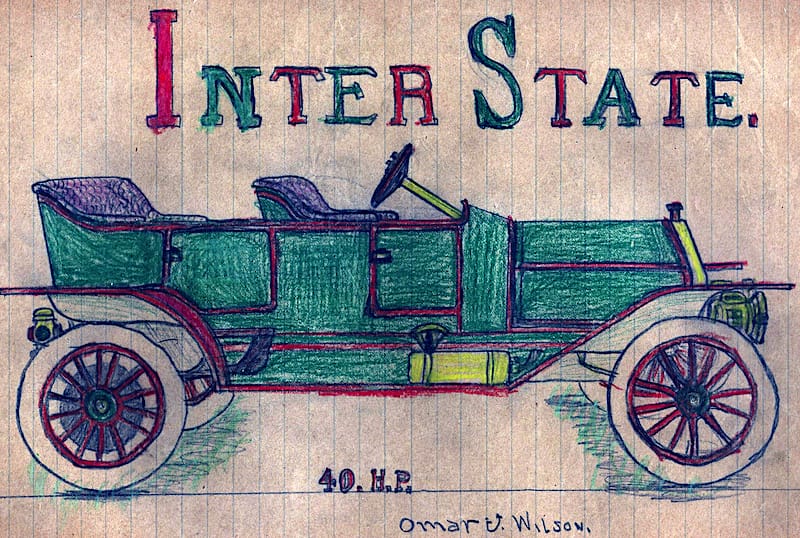 INTER STATE.
40. H.P.
Omar J. Wilson.